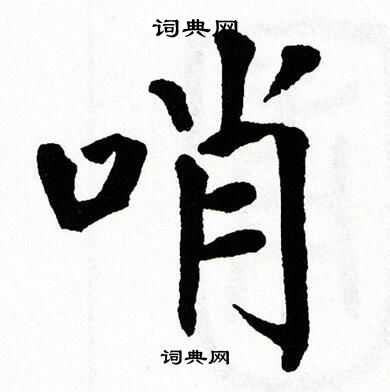 词典网
哨
词典网